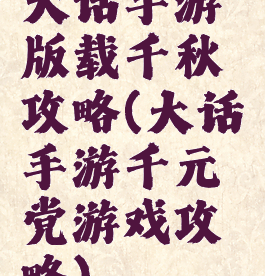 大话手游
版载千秋
攻略(大话
手游千元
党游戏攻
略)